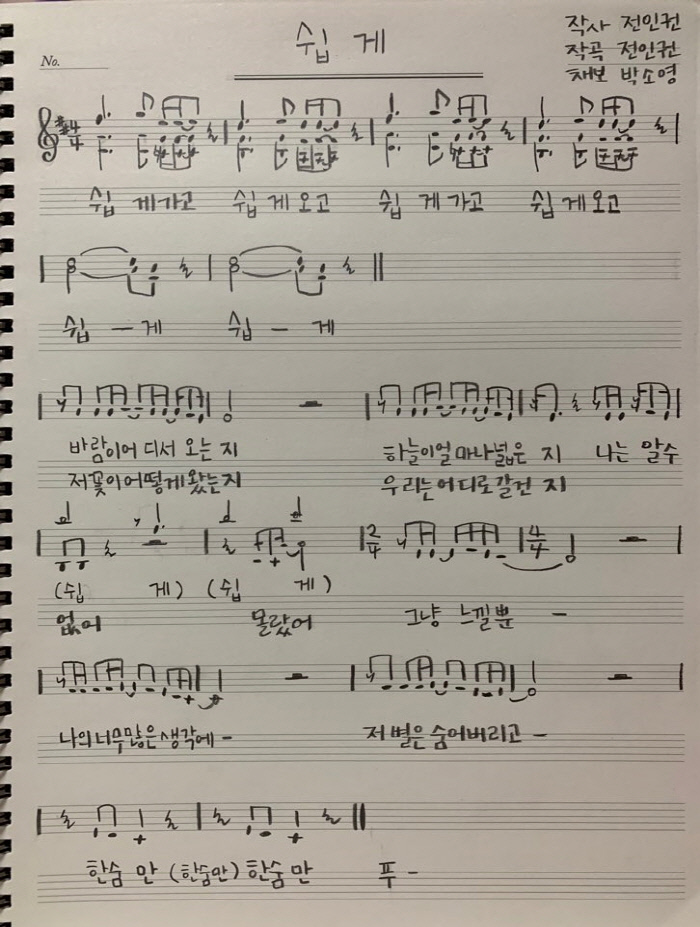 쉽 게
작사 전인권
작곡 전인권
채보 박소영
No.
4/4
쉽 게 가고 쉽 게 오고 쉽 게 가고 쉽 게 오고
쉽 – 게 쉽 – 게
바람이 어디서 오는 지 하늘이 얼마나 넓은 지 나는 알수
저 꽃이 어떻게 왔는지 우리는 어디로 갈건 지
2/4 4/4
(쉽 게) (쉽 게)
없어 몰랐어 그냥 느낄뿐 –
나의 너무 많은 생각에 – 저 별은 숨어버리고 –
한숨 만 (한숨만) 한숨 만 푸 –